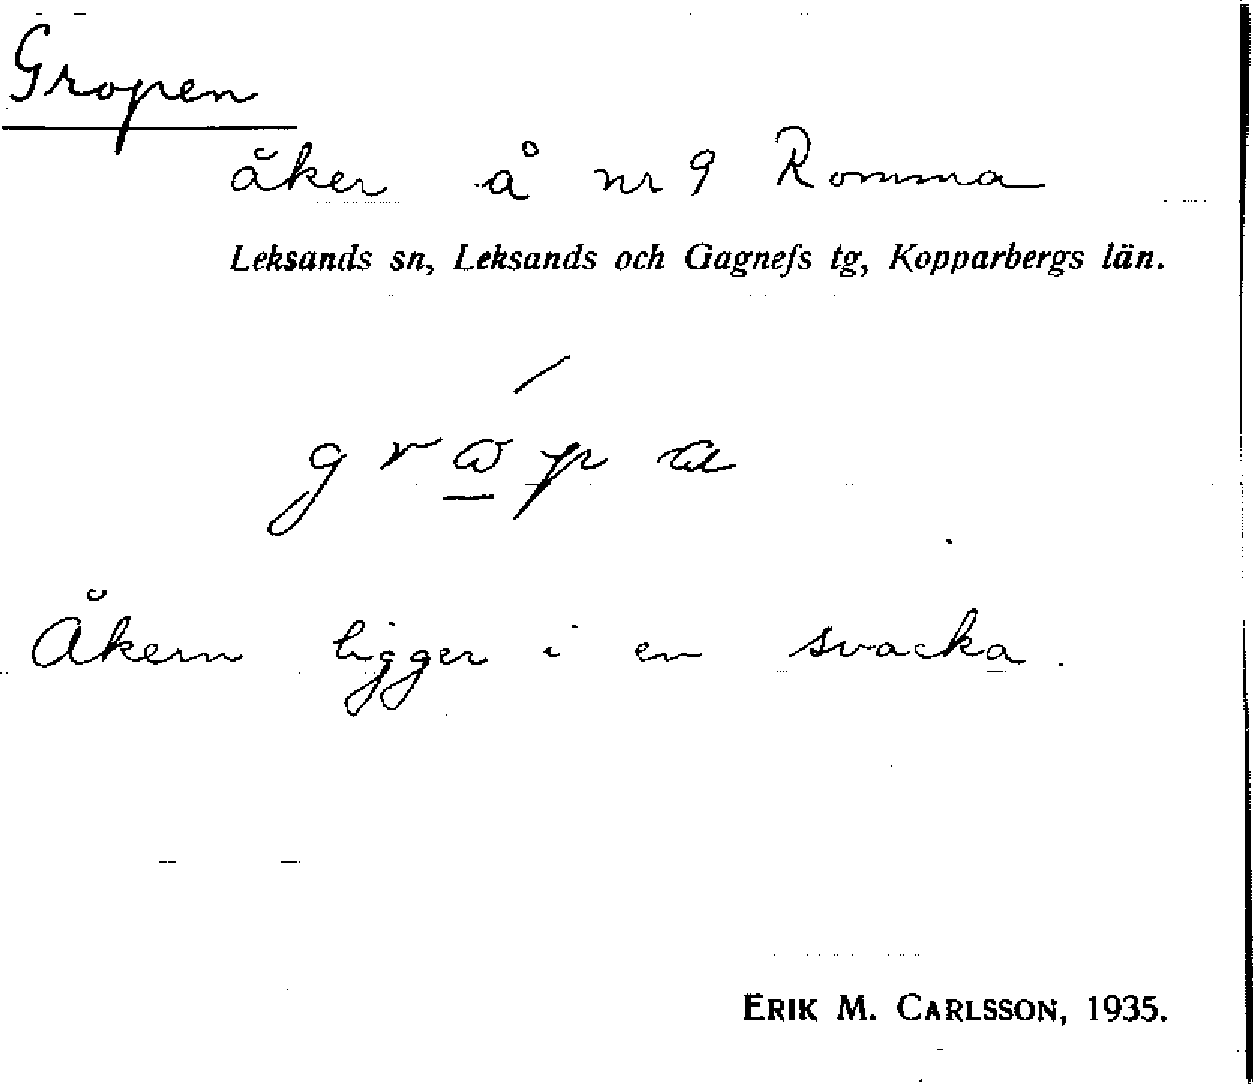 Gropen
åker å nr 9 Romma
Leksands sn, Leksands och Gagnefs tg, Kopparbergs län.
Åkern ligger i en svacka.
ERIK M. CARLSSON, 1935.